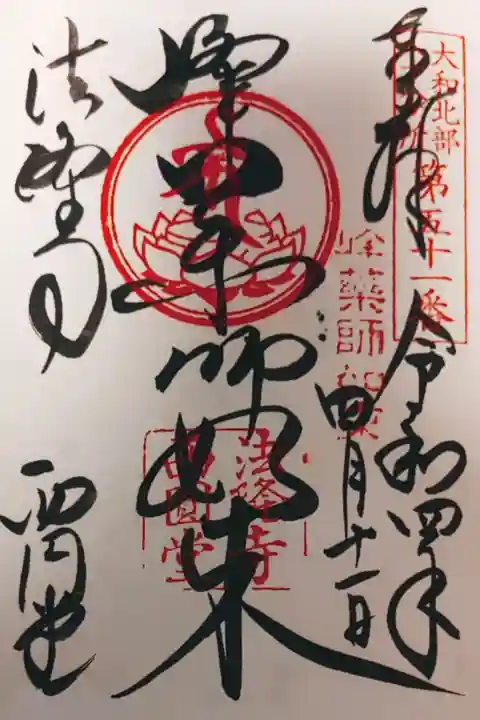 奉拝
大和北部
八十八ヶ所
第五十一番
令和四年
四月十一日
峰薬師如来
峰薬師如来
法隆寺
西圓堂
法隆寺
西円堂